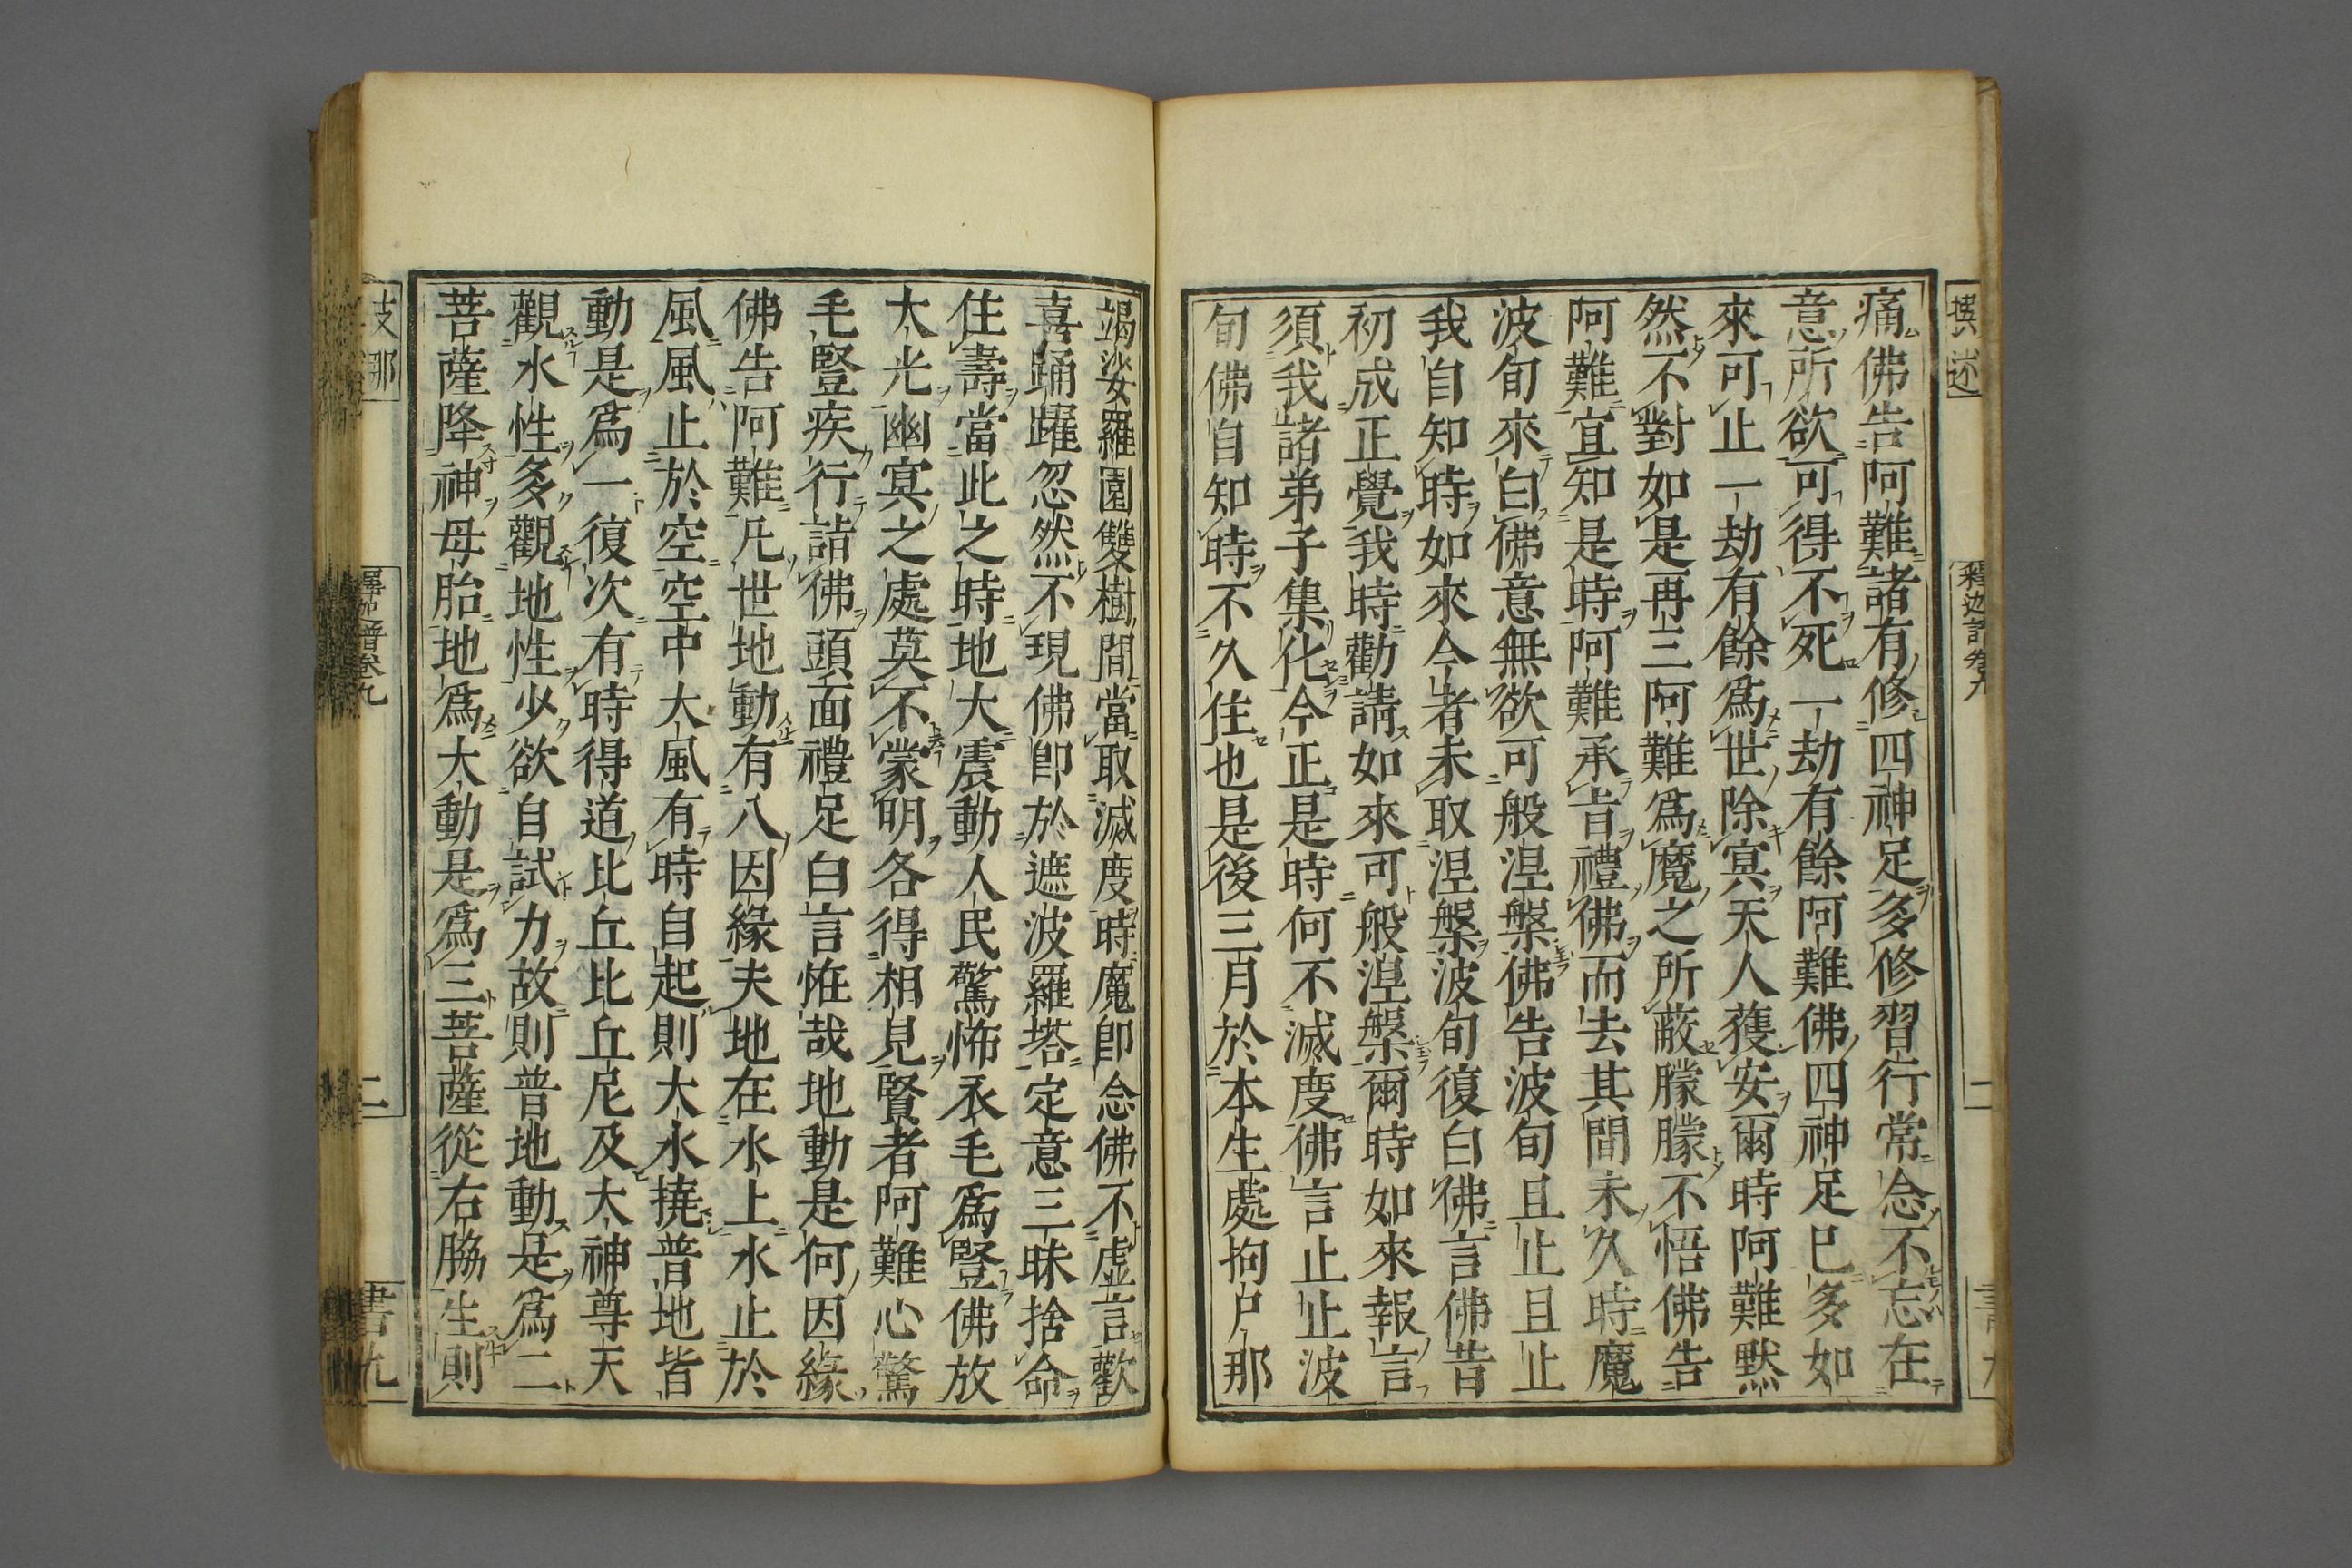 撰述
釋迦譜卷九
二
痛佛告阿難諸有修四神足多修習行常念不忘在
意所欲可得不死一劫有餘阿難佛四神足已多如
來可止一劫有餘爲世除冥天人獲安爾時阿難黙
然不對如是再三阿難爲魔之所蔽朦朦不悟佛告
阿難宜知是時阿難承旨禮佛而去其間未久時魔
波旬來白佛意無欲可般涅槃佛告波旬且止且止
我自知時如來今者未取涅槃波旬復白佛言佛昔
初成正覺我時勸請如來可般涅槃爾時如來報言
須我諸弟子集化今正是時何不滅度佛言止止波
旬佛自知時不久住也是後三月於本生處拘尸那
竭娑羅園雙樹間當取滅度時魔卽念佛不虛言歡
喜踊躍忽然不現佛卽於遮波羅塔定意三昧捨命
住壽當此之時地大震動人民驚怖衣毛爲豎佛放
大光幽冥之處莫不蒙明各得相見賢者阿難心驚
毛豎疾行詣佛頭面禮足白言恠哉地動是何因緣
佛告阿難凡世地動有八因緣夫地在水上水止於
風風止於空空中大風有時自起則大水撓普地皆
動是爲一復次有時得道比丘比丘尼及大神尊天
觀水性多觀地性少欲自試力故則普地動是爲二
菩薩降神母胎地爲大動是爲三菩薩從右脇生則
支那
釋迦譜卷九
二
書九